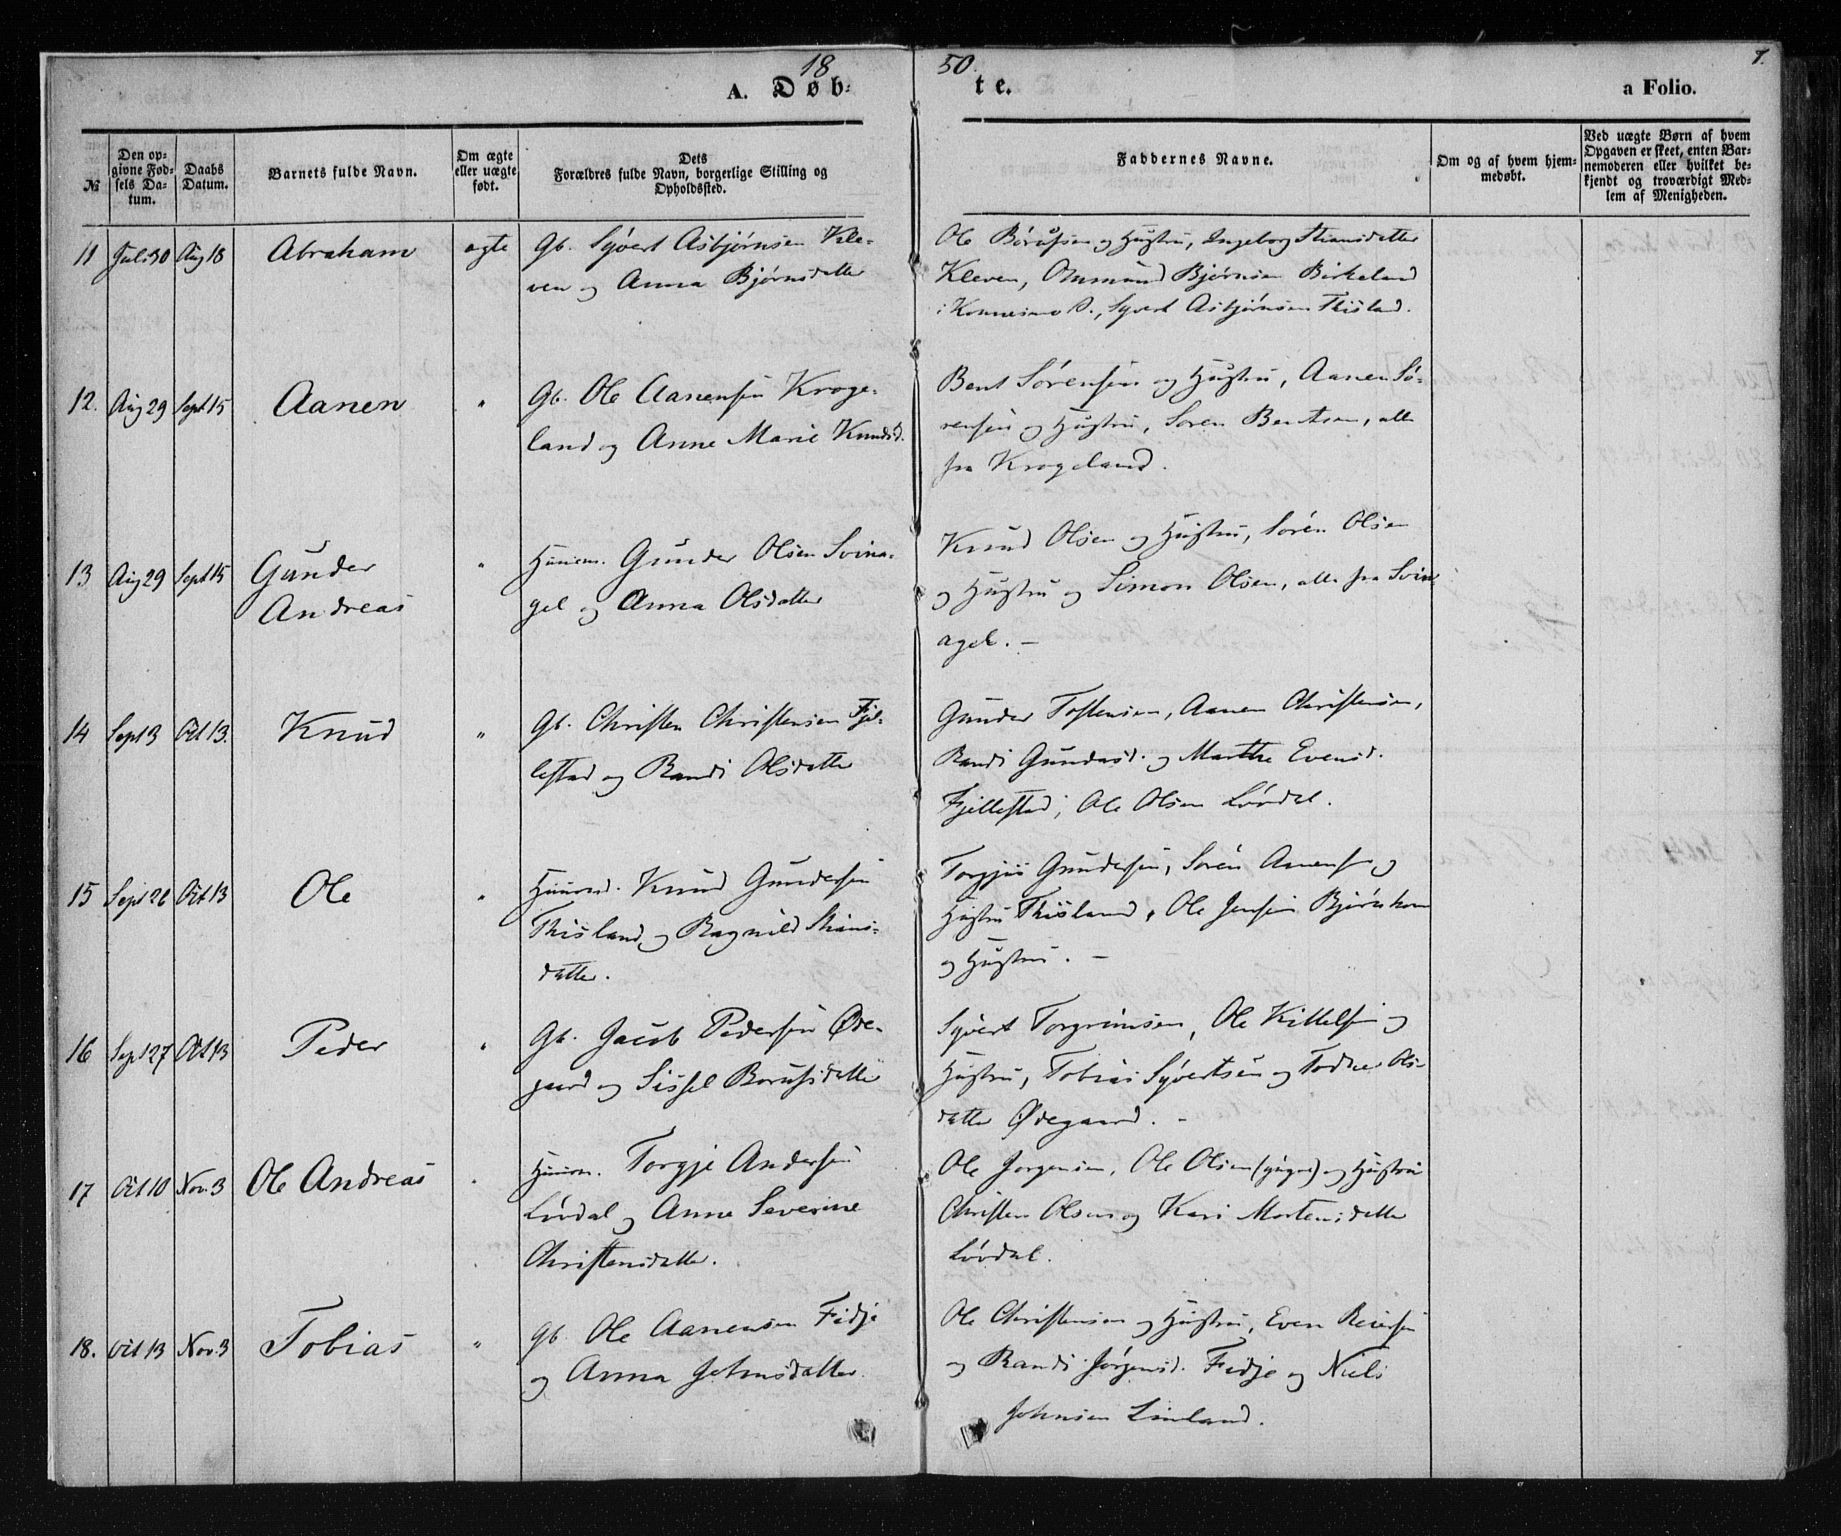 18 50. 7.
A. Døb- te. a Folio.
№
Den op-
givne Fød-
sels Da-
tum.
Daabs
Datum.
Barnets fulde Navn.
Om ægte
eller uægte
født.
Dets
Forældres fulde Navn, borgerlige Stilling og
Opholdssted.
Faddernes Navne.
Om og af hvem hjem-
medøbt.
Ved uægte Børn af hvem
Opgaven er skeet, enten Bar-
nemoderen eller hvilket be-
kjendt og troværdigt Med-
lem af Menigheden.
11 Juli 30 Aug 18 Abraham ægte Gb. Syvert Asbjørnsen Kle-
ven og Anna Bjørnsdatter
Ole Børufsen og Hustru, Ingeborg Stiansdatter
Kleven, Ommund Bjørnsen Birkeland
i Konnesmo S., Syvert Asbjørnsen Thisland.
12. Aug 29 Sept 15 Aanen " Gb. Ole Aanensen Kroge-
land og Anne Marie Knudsd.
Bent Sørensen og Hustru, Aanen Sø-
rensen og Hustru, Søren Bentsen, alle
fra Krogeland.
13 Aug 29 Sept 15 Gunder
Andreas
" Huusm. Gunder Olsen Svina-
gel og Anna Olsdatter
Knud Olsen og Hustru, Søren Olsen
og Hustru og Simon Olsen, alle fra Svin
agel. —
14 Sept 3 Oct 13. Knud " Gb. Christen Christensen Fjel-
lestad og Randi Olsdatter
Gunder Tostensen, Aanen Christensen,
Randi Gundersd. og Marthe Evensd.
Fjellestad, Ole Olsen Løvdal.
15 Sept 26 Oct 13 Ole " Huusmd. Knud Gundersen
Thisland og Ragnild Stians-
datter.
Torgjus Gundersen, Søren Aanensen og
Hustru Thisland, Ole Jensen Bjørnhom
og Hustru. —
16 Sept 27 Oct 13 Peder " Gb. Jacob Pedersen Øde-
gaard og Sissel Børufsdatter
Syvert Torgrimsen, Ole Kittelsen og
Hustru, Tobias Syvertsen og Todne Ols-
datter Ødegaard. —
17 Oct 10 Nov. 3 Ole Andreas " Huusm. Torgje Andersen
Løvdal og Anne Severine
Christensdatter.
Ole Jørgensen, Ole Olsen (yngre) og Hustru
Christen Olsen og Kari Mortensdatter
Løvdal.
18. Oct 13 Nov. 3 Tobias " Gb. Ole Aanensen Fidje
og Anna Johnsdatter.
Ole Christensen og Hustru, Even Reiersen
og Randi Jørgensd. Fidje og Niels
Johnsen Linland.